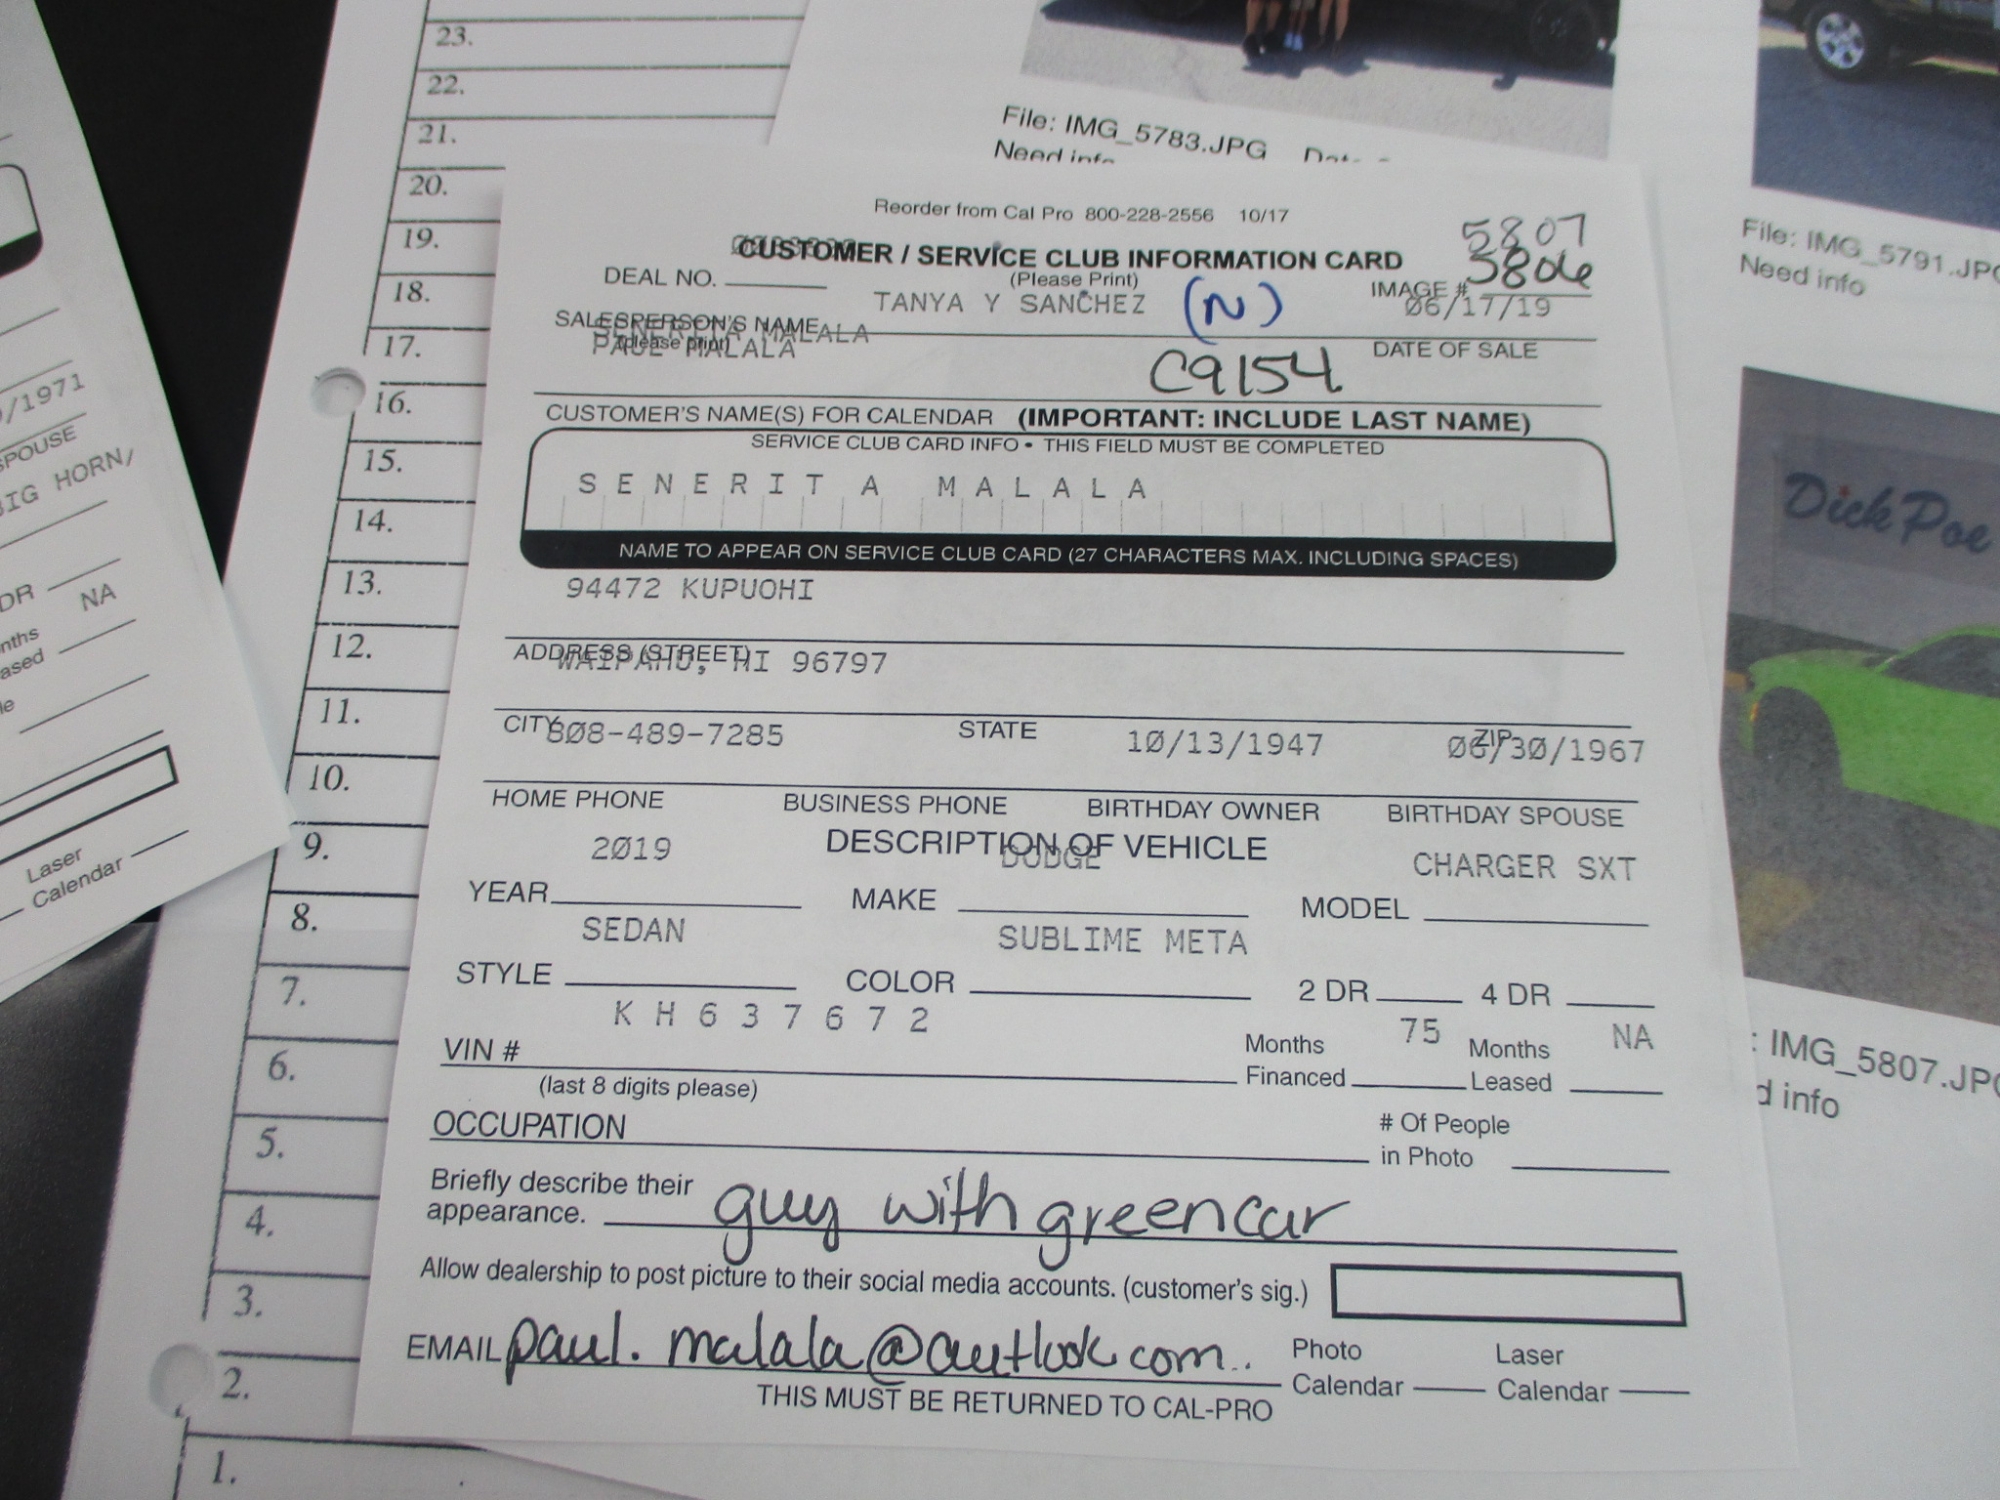 23.
22.
21.
20.
19.
18.
17.
16.
15.
14.
13.
12.
11.
10.
9.
8.
7.
6.
5.
4.
3.
2.
1.
File: IMG_5783.JPG
Need info
File: IMG_5791.JPG
Need info
Dick Poe
: IMG_5807.JPG
d info
/1971
SPOUSE
BIG HORN/
DR
NA
nths
ased
le
Laser
Calendar
Reorder from Cal Pro 800-228-2556 10/17
5807
CUSTOMER / SERVICE CLUB INFORMATION CARD
5806
DEAL NO.
(Please Print)
IMAGE #
TANYA Y SANCHEZ (N)
06/17/19
SALESPERSON'S NAME
(please print)
SENERITA MALALA
PAUL MALALA
DATE OF SALE
C9154
CUSTOMER'S NAME(S) FOR CALENDAR (IMPORTANT: INCLUDE LAST NAME)
SERVICE CLUB CARD INFO • THIS FIELD MUST BE COMPLETED
SENERITA MALALA
NAME TO APPEAR ON SERVICE CLUB CARD (27 CHARACTERS MAX. INCLUDING SPACES)
94472 KUPUOHI
ADDRESS (STREET)
WAIPAHU, HI 96797
CITY STATE ZIP
808-489-7285 10/13/1947 06/30/1967
HOME PHONE BUSINESS PHONE BIRTHDAY OWNER BIRTHDAY SPOUSE
DESCRIPTION OF VEHICLE
2019 DODGE CHARGER SXT
YEAR MAKE MODEL
SEDAN SUBLIME META
STYLE COLOR 2 DR 4 DR
KH637672 75 NA
VIN # Months Financed Months Leased
(last 8 digits please)
OCCUPATION # Of People in Photo
Briefly describe their
appearance. guy with green car
Allow dealership to post picture to their social media accounts. (customer's sig.)
EMAIL paul.malala@outlook.com Photo Calendar Laser Calendar
THIS MUST BE RETURNED TO CAL-PRO